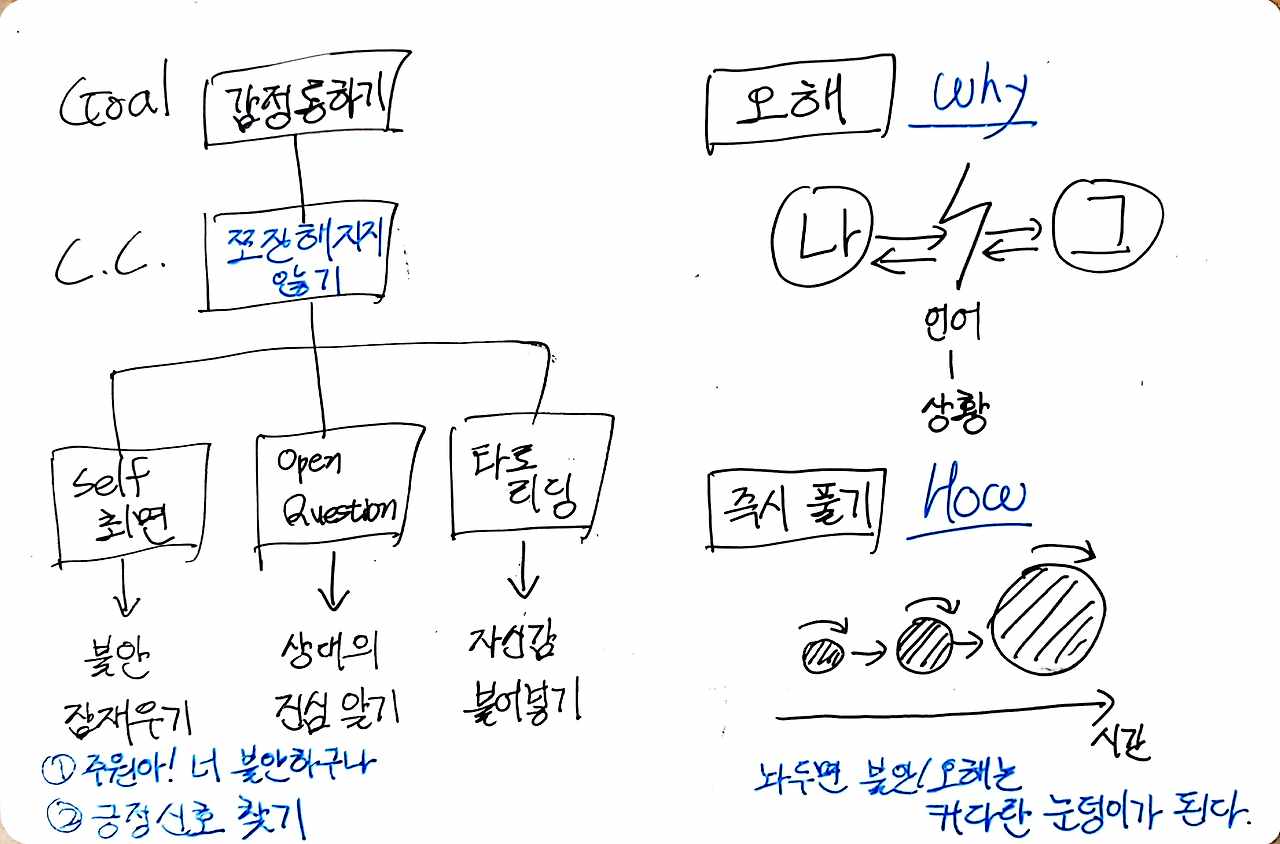 Goal
감정통하기
C.C.
쪼잔해지지
않기
Self
최면
Open
Question
타로
리딩
불안
잠재우기
상대의
진심 알기
자신감
불어넣기
① 주원아! 너 불안하구나
② 긍정신호 찾기
오해
Why
나
그
언어
상황
즉시 풀기
How
시간
놔두면 불안/오해는
커다란 눈덩이가 된다.